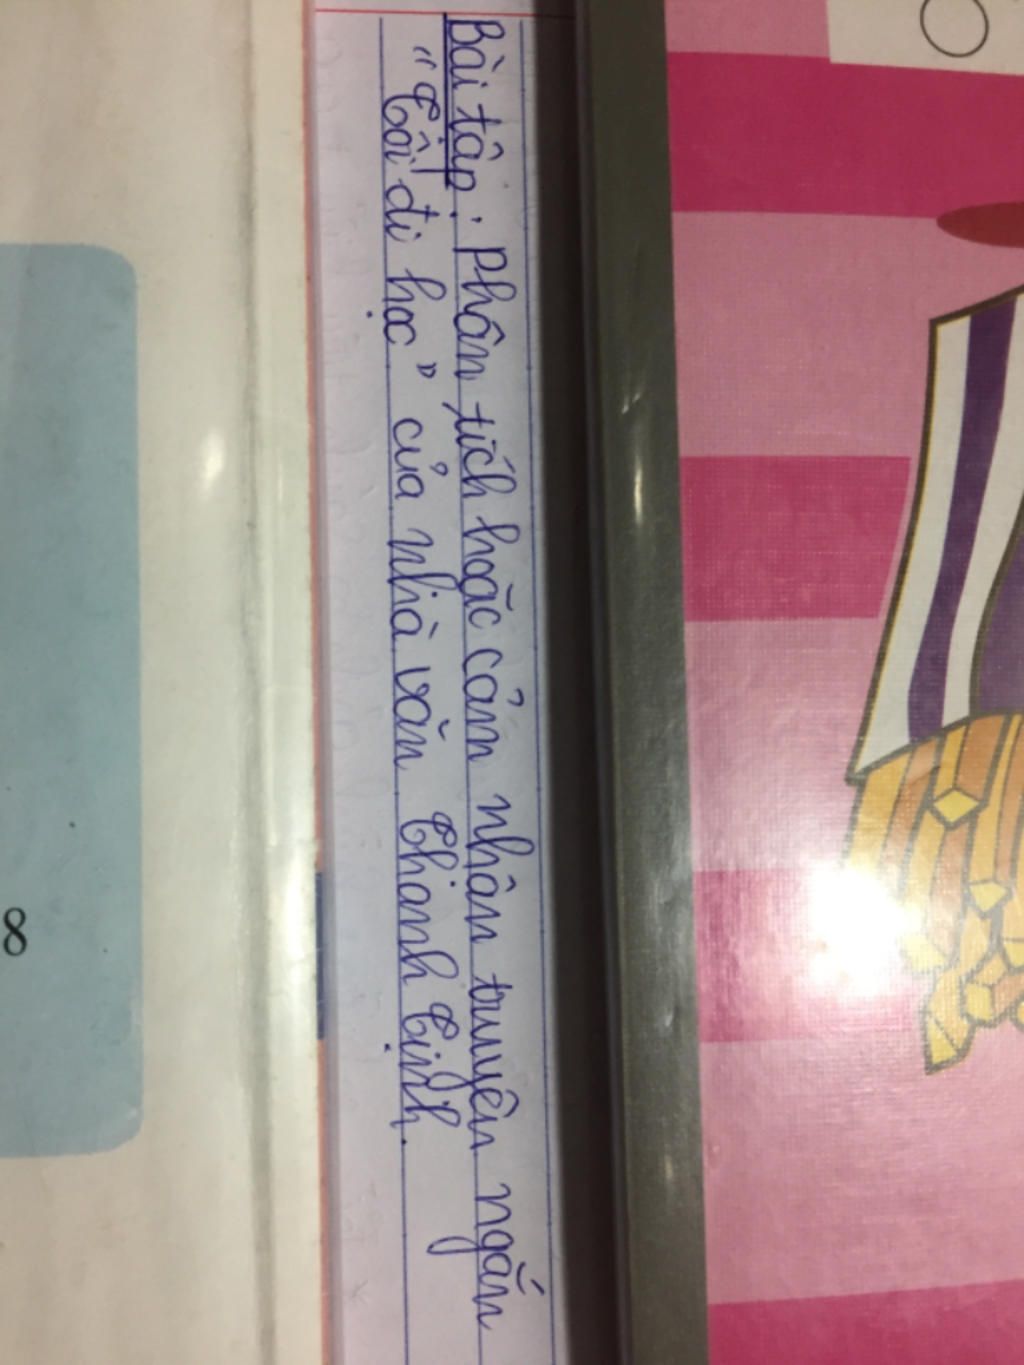 Bài tập: Phân tích hoặc cảm nhân truyện ngắn
"Tôi đi học" của nhà văn Thanh Tịnh.
8